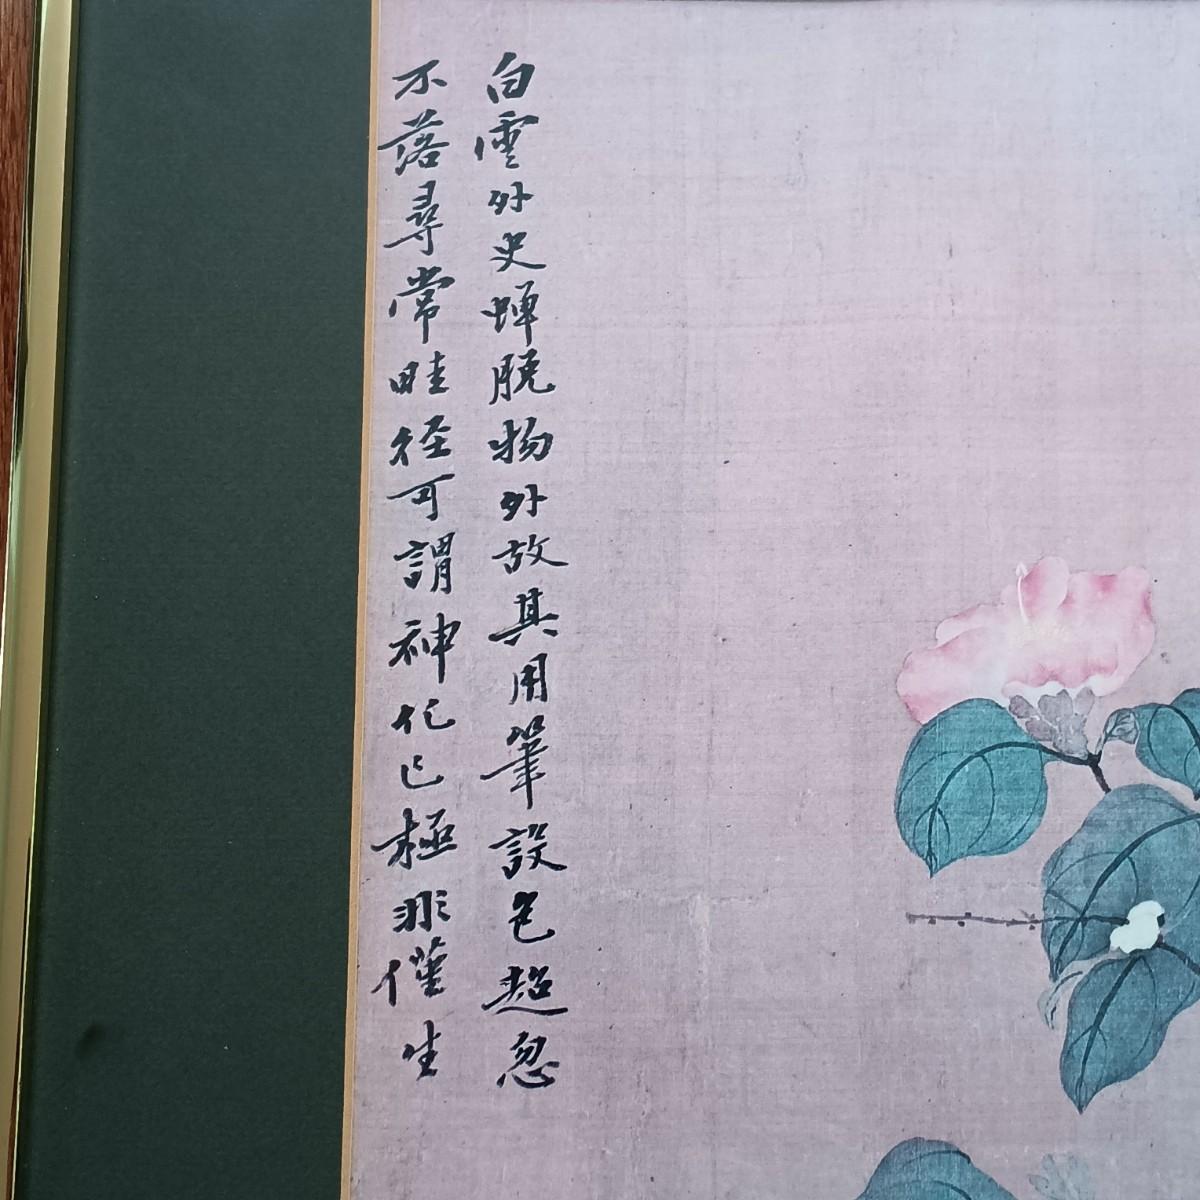 白雲外史蟬脫物外故其用筆設色超忽
不落尋常畦徑可謂神化已極非僅生